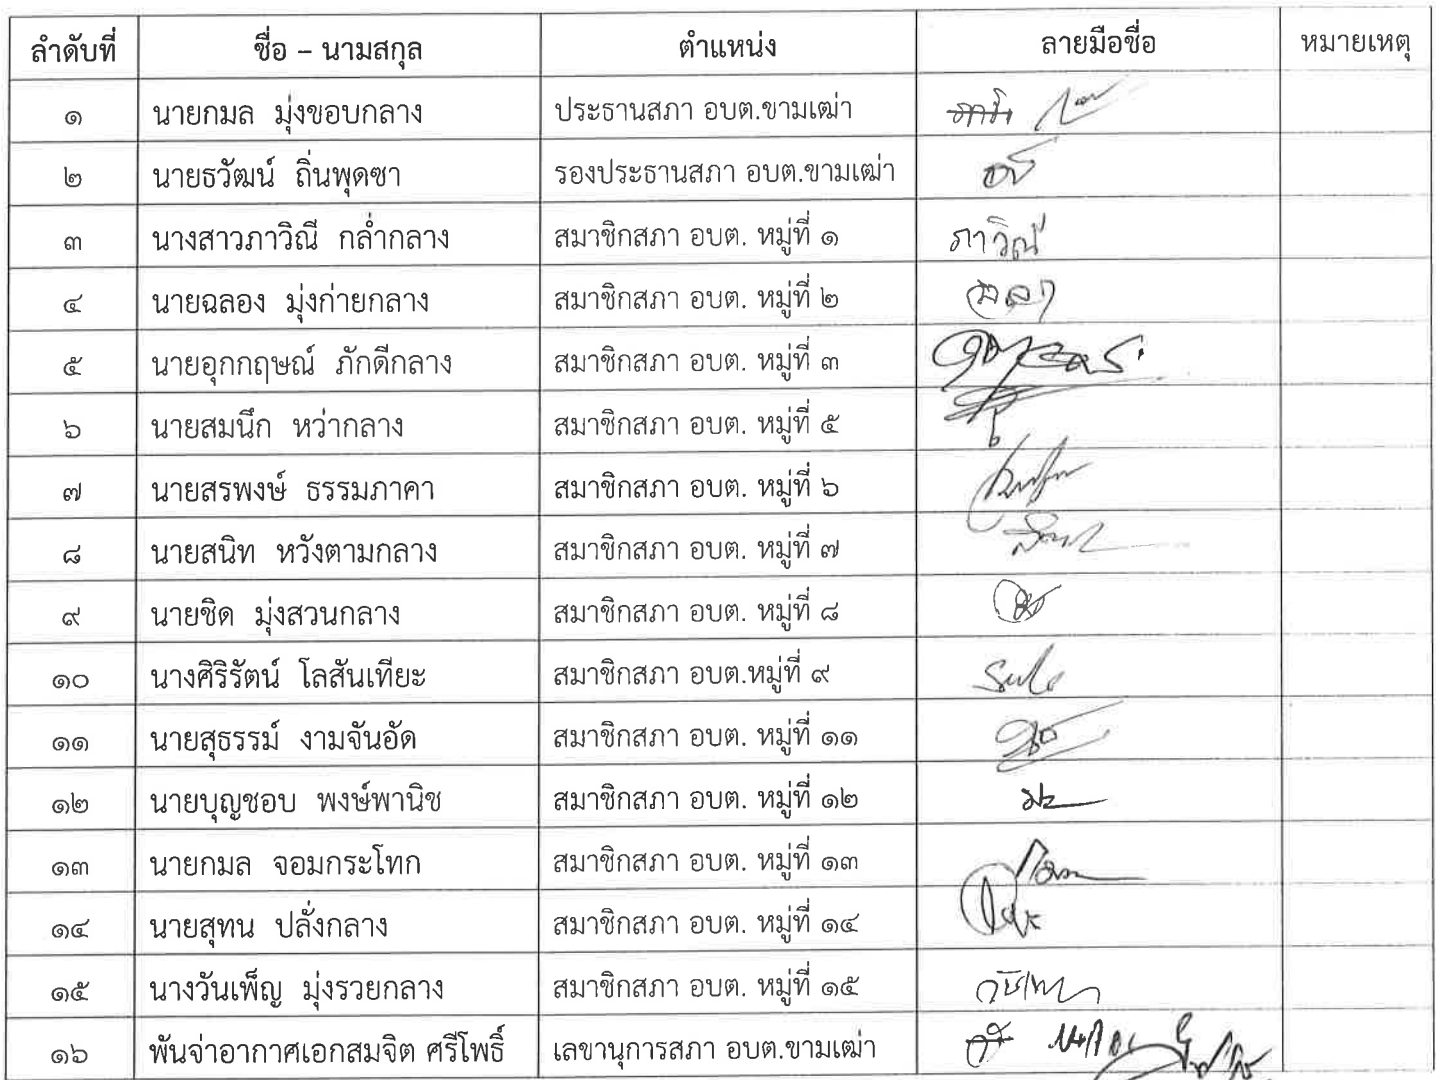 ลำดับที่ ชื่อ – นามสกุล ตำแหน่ง ลายมือชื่อ หมายเหตุ
๑ นายกมล มุ่งขอบกลาง ประธานสภา อบต.ขามเฒ่า
๒ นายธวัฒน์ ถิ่นพุดซา รองประธานสภา อบต.ขามเฒ่า
๓ นางสาวภาวิณี กล่ำกลาง สมาชิกสภา อบต. หมู่ที่ ๑ ภาวิณี
๔ นายฉลอง มุ่งก่ายกลาง สมาชิกสภา อบต. หมู่ที่ ๒
๕ นายอุกกฤษณ์ ภักดีกลาง สมาชิกสภา อบต. หมู่ที่ ๓
๖ นายสมนึก หว่ากลาง สมาชิกสภา อบต. หมู่ที่ ๕
๗ นายสรพงษ์ ธรรมภาคา สมาชิกสภา อบต. หมู่ที่ ๖
๘ นายสนิท หวังตามกลาง สมาชิกสภา อบต. หมู่ที่ ๗
๙ นายชิด มุ่งสวนกลาง สมาชิกสภา อบต. หมู่ที่ ๘
๑๐ นางศิริรัตน์ โลสันเทียะ สมาชิกสภา อบต.หมู่ที่ ๙
๑๑ นายสุธรรม์ งามจันอัด สมาชิกสภา อบต. หมู่ที่ ๑๑
๑๒ นายบุญชอบ พงษ์พานิช สมาชิกสภา อบต. หมู่ที่ ๑๒
๑๓ นายกมล จอมกระโทก สมาชิกสภา อบต. หมู่ที่ ๑๓
๑๔ นายสุทน ปลั่งกลาง สมาชิกสภา อบต. หมู่ที่ ๑๔
๑๕ นางวันเพ็ญ มุ่งรวยกลาง สมาชิกสภา อบต. หมู่ที่ ๑๕
๑๖ พันจ่าอากาศเอกสมจิต ศรีโพธิ์ เลขานุการสภา อบต.ขามเฒ่า